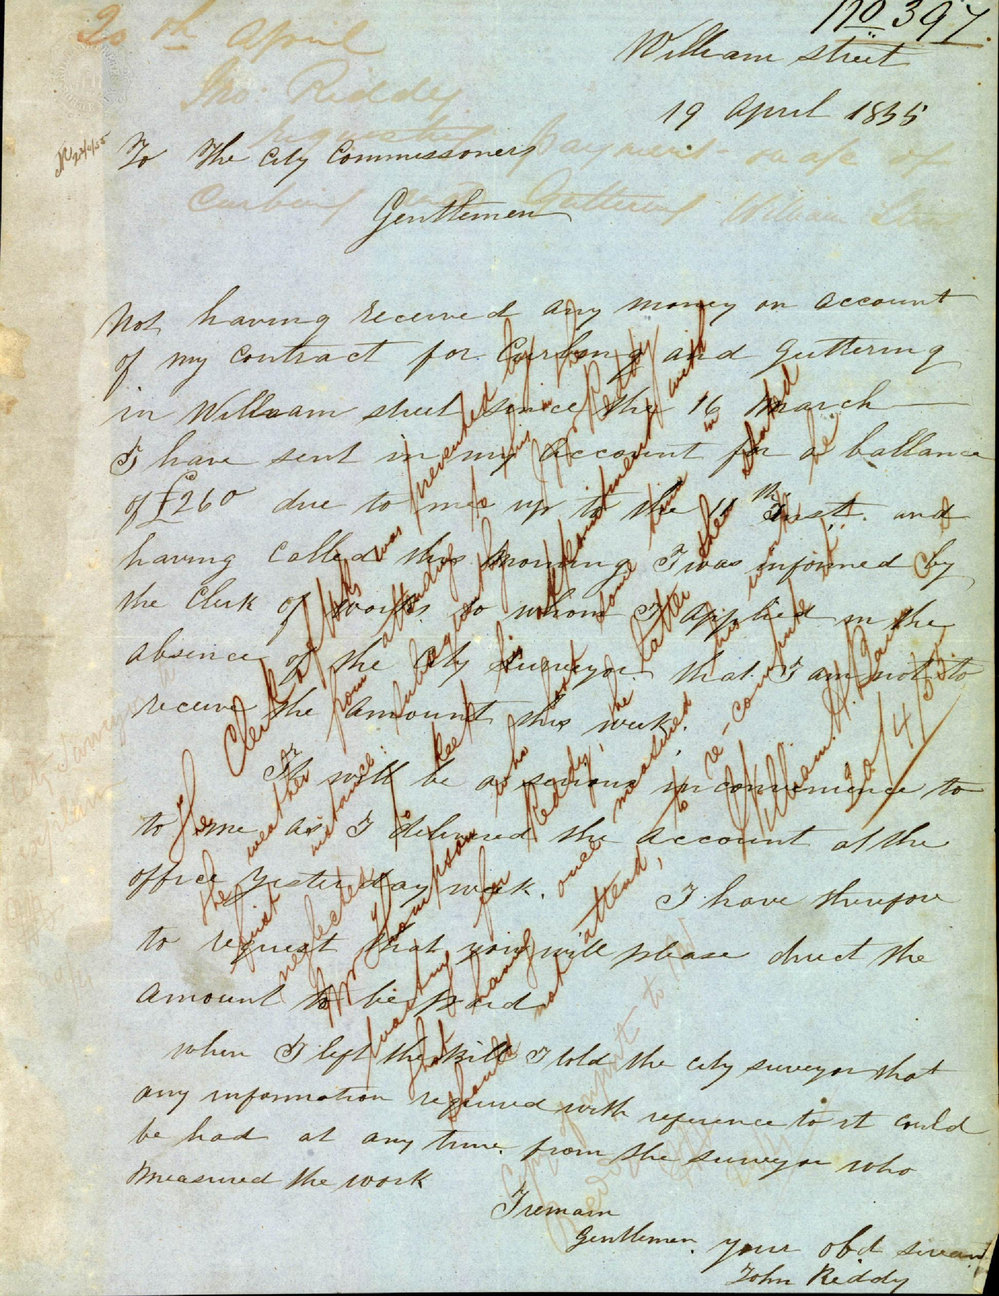 No 397.
William street
19 April 1855
To The City Commissioners
Gentlemen
Not having received any money on account
of my contract for Curbing and Guttering
in William street since the 16 March
I have sent in my account for a ballance
of £260 due to me up to the 11th Inst. and
having called this morning I was informed by
the Clerk of works to whom I applied in the
absence of the City Surveyor that I am not to
receive the amount this week.
It will be a serious inconvenience to
to me as I delivered the account at the
office yesterday week. I have therefore
to request that you will please direct the
amount to be paid
when I left the Bill I told the city surveyor that
any information required with reference to it could
be had at any time from the surveyor who
measured the work
I remain
Gentlemen your obd servant
John Riddy
The Clerk of Works was prevented by
the weather from attending to this in the
first instance; subsequently Jno Reddy
neglected to keep his appointment with
Mr Thompson who lost some time in
waiting for Reddy, the latter then stated
that having once measured his work he
should not attend, to re-compute it
William H. Baron C of
20/4/55
20th April
Jno. Riddy
requesting payment on a/c of
Curbing and Guttering William Street
City Surveyor